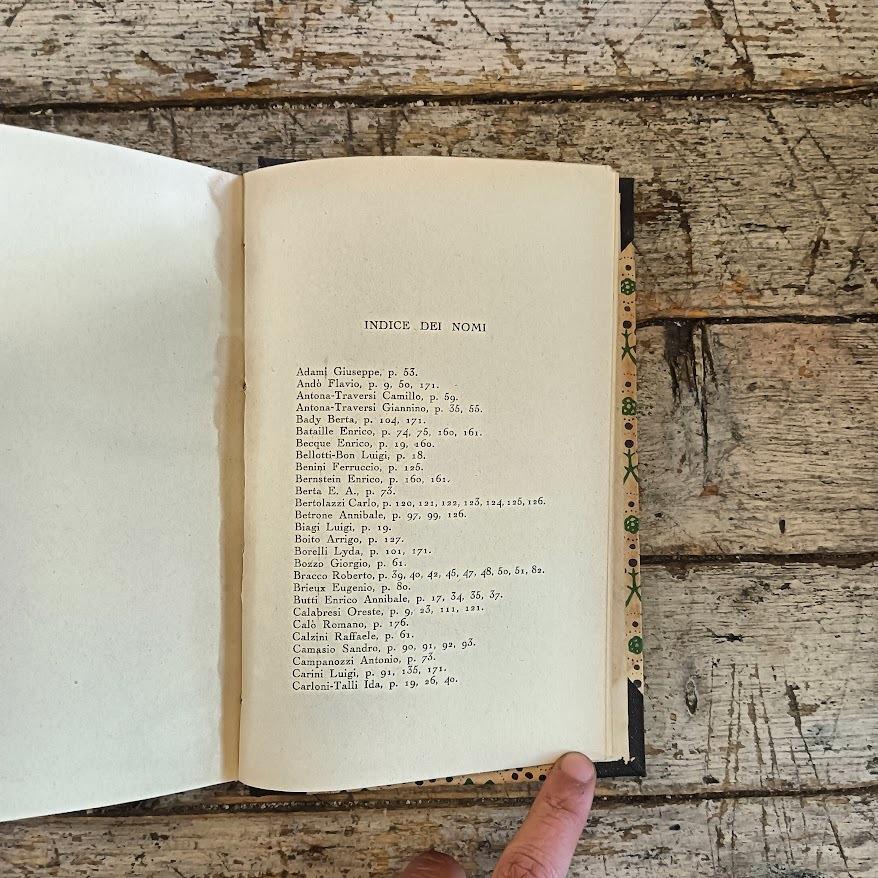 INDICE DEI NOMI
Adami Giuseppe, p. 53.
Andò Flavio, p. 9, 50, 171.
Antona-Traversi Camillo, p. 59.
Antona-Traversi Giannino, p. 35, 55.
Bady Berta, p. 104, 171.
Bataille Enrico, p. 74, 75, 160, 161.
Becque Enrico, p. 19, 160.
Bellotti-Bon Luigi, p. 18.
Benini Ferruccio, p. 125.
Bernstein Enrico, p. 160, 161.
Berta E. A., p. 73.
Bertolazzi Carlo, p. 120, 121, 122, 123, 124, 125, 126.
Betrone Annibale, p. 97, 99, 126.
Biagi Luigi, p. 19.
Boito Arrigo, p. 127.
Borelli Lyda, p. 101, 171.
Bozzo Giorgio, p. 61.
Bracco Roberto, p. 39, 40, 42, 45, 47, 48, 50, 51, 82.
Brieux Eugenio, p. 80.
Butti Enrico Annibale, p. 17, 34, 35, 37.
Calabresi Oreste, p. 9, 23, 111, 121.
Calò Romano, p. 176.
Calzini Raffaele, p. 61.
Camasio Sandro, p. 90, 91, 92, 93.
Campanozzi Antonio, p. 73.
Carini Luigi, p. 91, 135, 171.
Carloni-Talli Ida, p. 19, 26, 40.